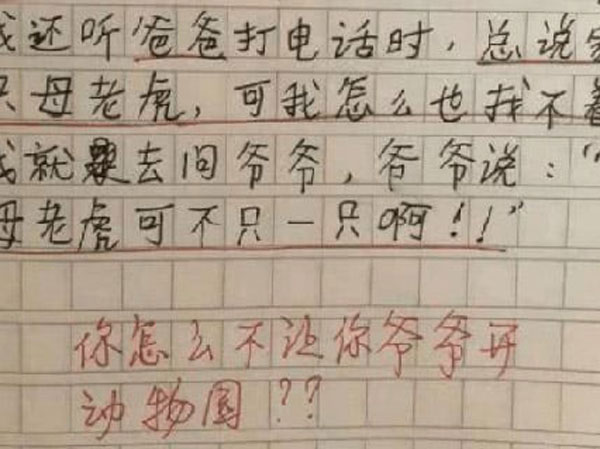 我还听爸爸打电话时，总说家
只母老虎，可我怎么也找不着
我就去问爷爷，爷爷说：“
母老虎可不只一只啊！！”
你怎么不让你爷爷开
动物园？？